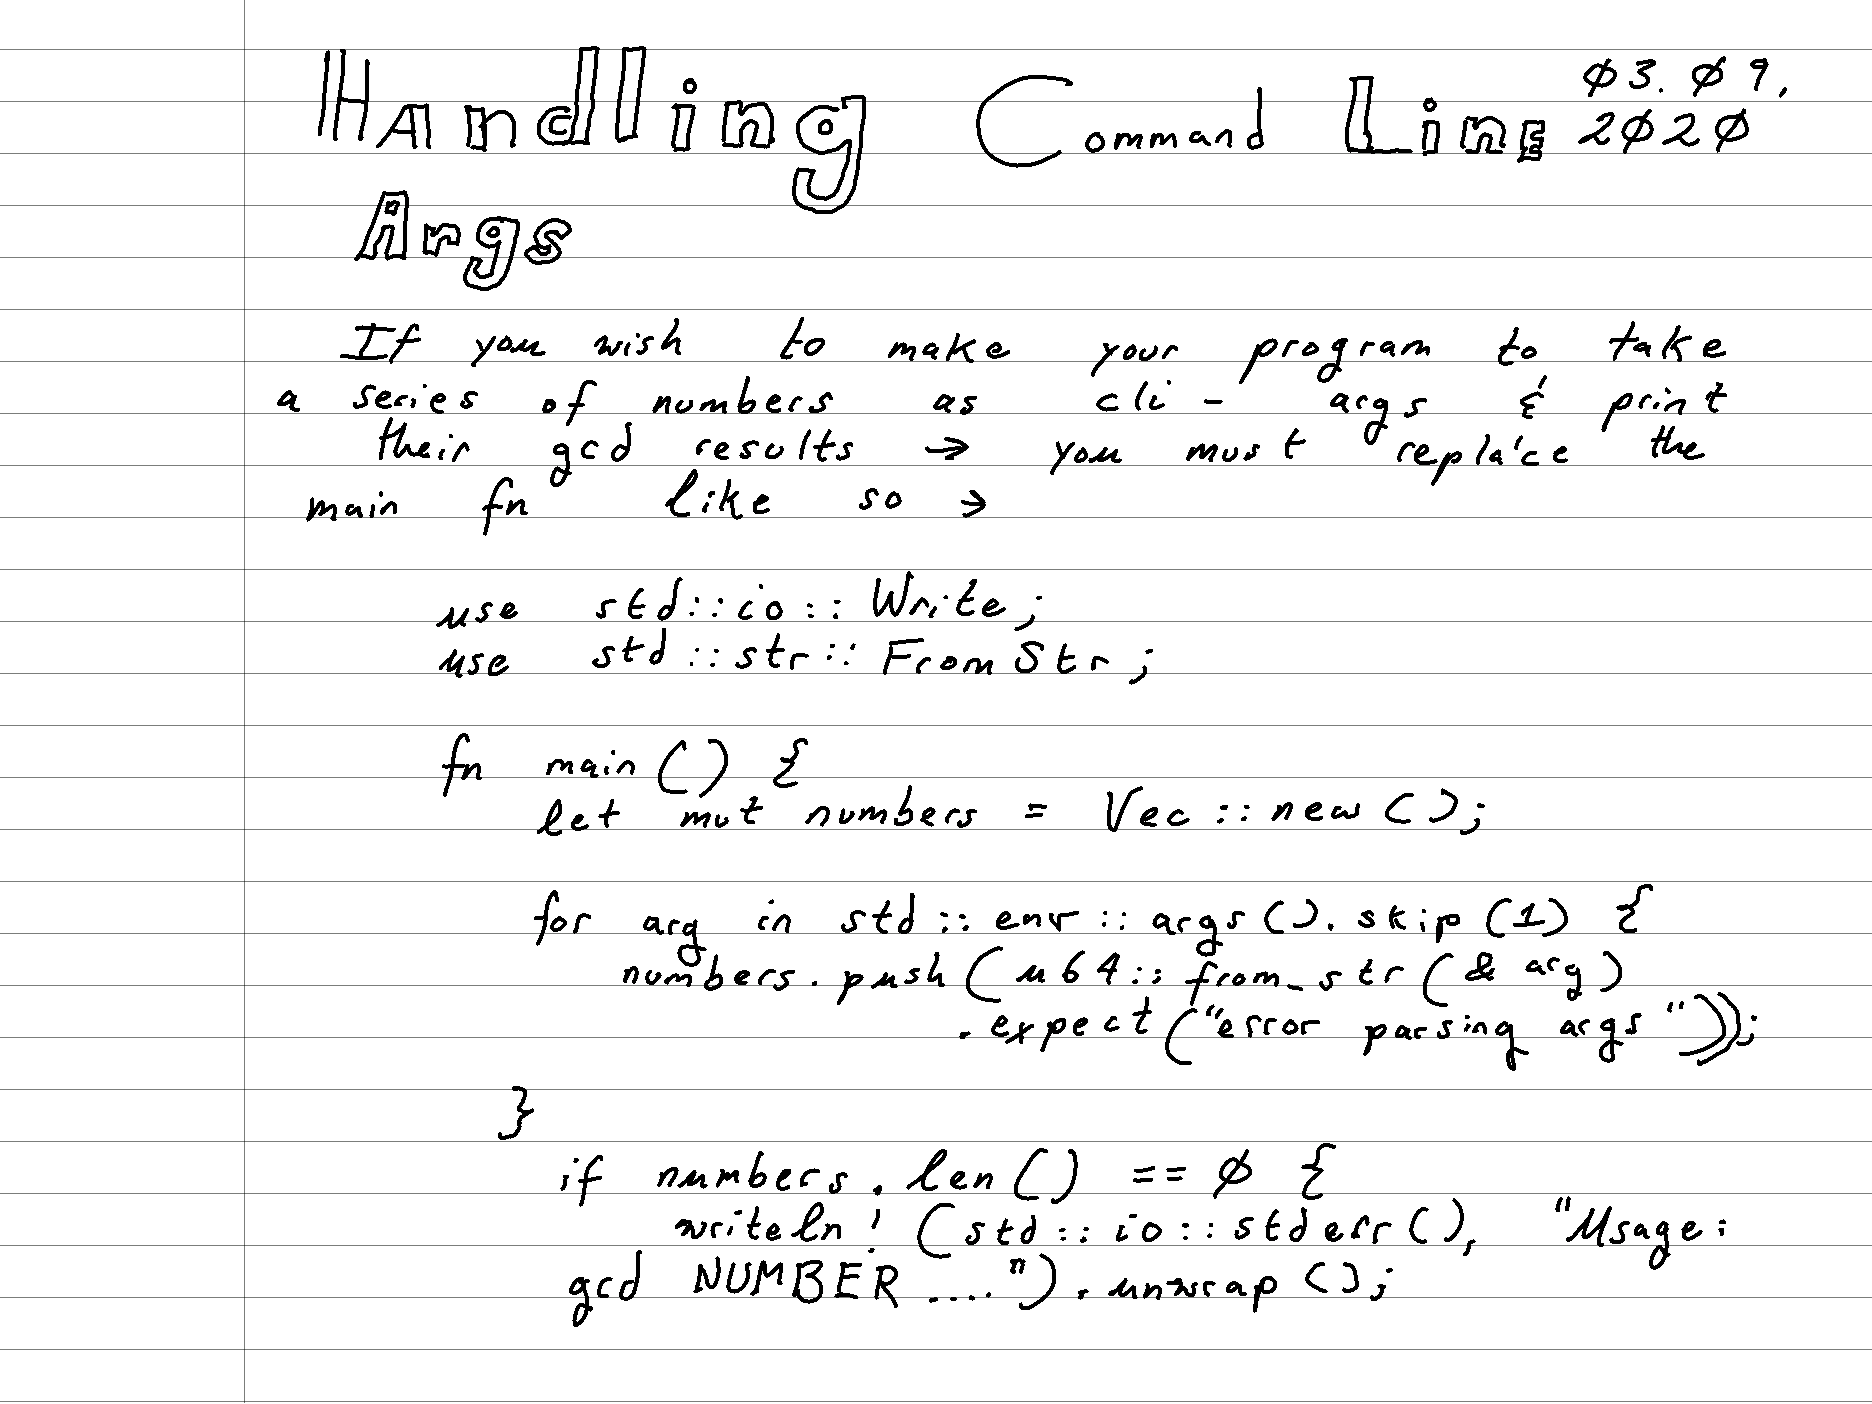 Handling Command Line Ø3.Ø9,
2Ø2Ø
Args
If you wish to make your program to take
a series of numbers as cli - args & print
their gcd results → you must replace the
main fn like so →
use std::io::Write;
use std::str::FromStr;
fn main() {
let mut numbers = Vec::new();
for arg in std::env::args().skip(1) {
numbers.push(u64::from_str(&arg)
.expect("error parsing args"));
}
if numbers.len() == Ø {
writeln!(std::io::stderr(), "Usage:
gcd NUMBER ....").unwrap();